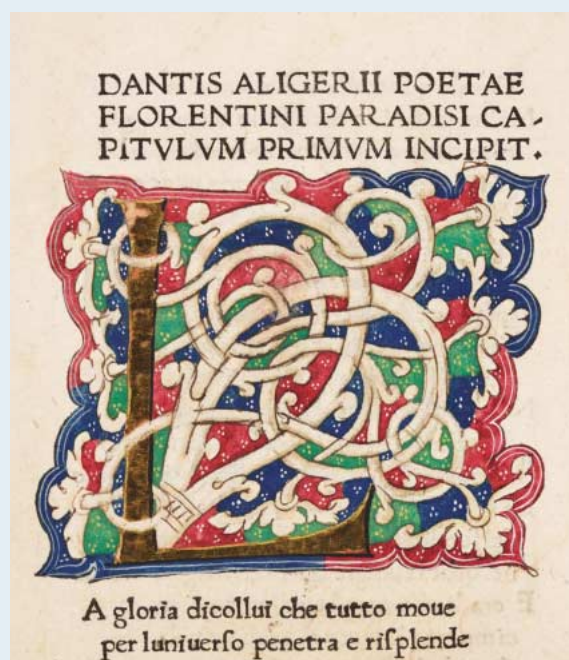 DANTIS ALIGERII POETAE
FLORENTINI PARADISI CA-
PITVLVM PRIMVM INCIPIT.
L
A gloria dicollui che tutto moue
per luniuerſo penetra e riſplende